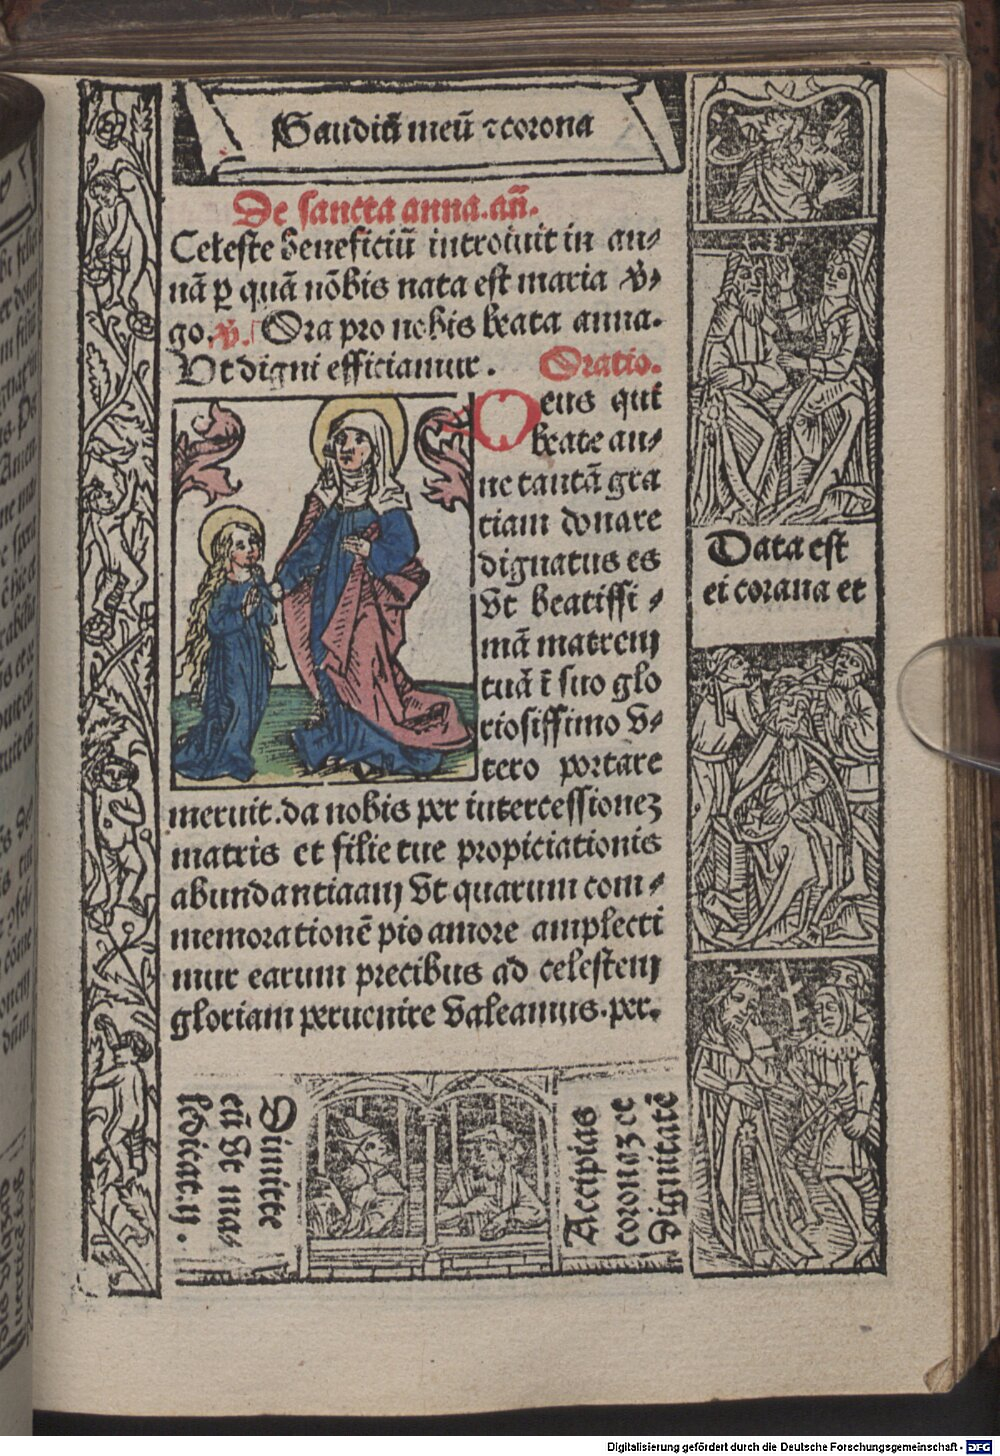 Gaudiũ meũ ⁊ corona
De sancta anna. añ.
Celeste beneficiũ introiuit in an⸗
nã ꝑ quã nõbis nata est maria v̾⸗
go. v̾. Ora pro nobis beata anna.
Vt digni efficiamur. Oratio.
Deus qui
beate an⸗
ne tantã gra
tiam donare
dignatus es
vt beatissi⸗
mã matrem
tuã ĩ suo glo
riosissimo v⸗
tero portare
meruit. da nobis per intercessionez
matris et filie tue propiciationis
abundantiaam vt quarum com⸗
memorationẽ pio amore amplecti
mur earum precibus ad celestem
gloriam peruenire valeamus. per.
Data est
ei corana et
Dimitte
eũ vt ma⸗
ledicat. ij.
Accipias
coronaz ce
dignitatẽ
Digitalisierung gefördert durch die Deutsche Forschungsgemeinschaft - DFG